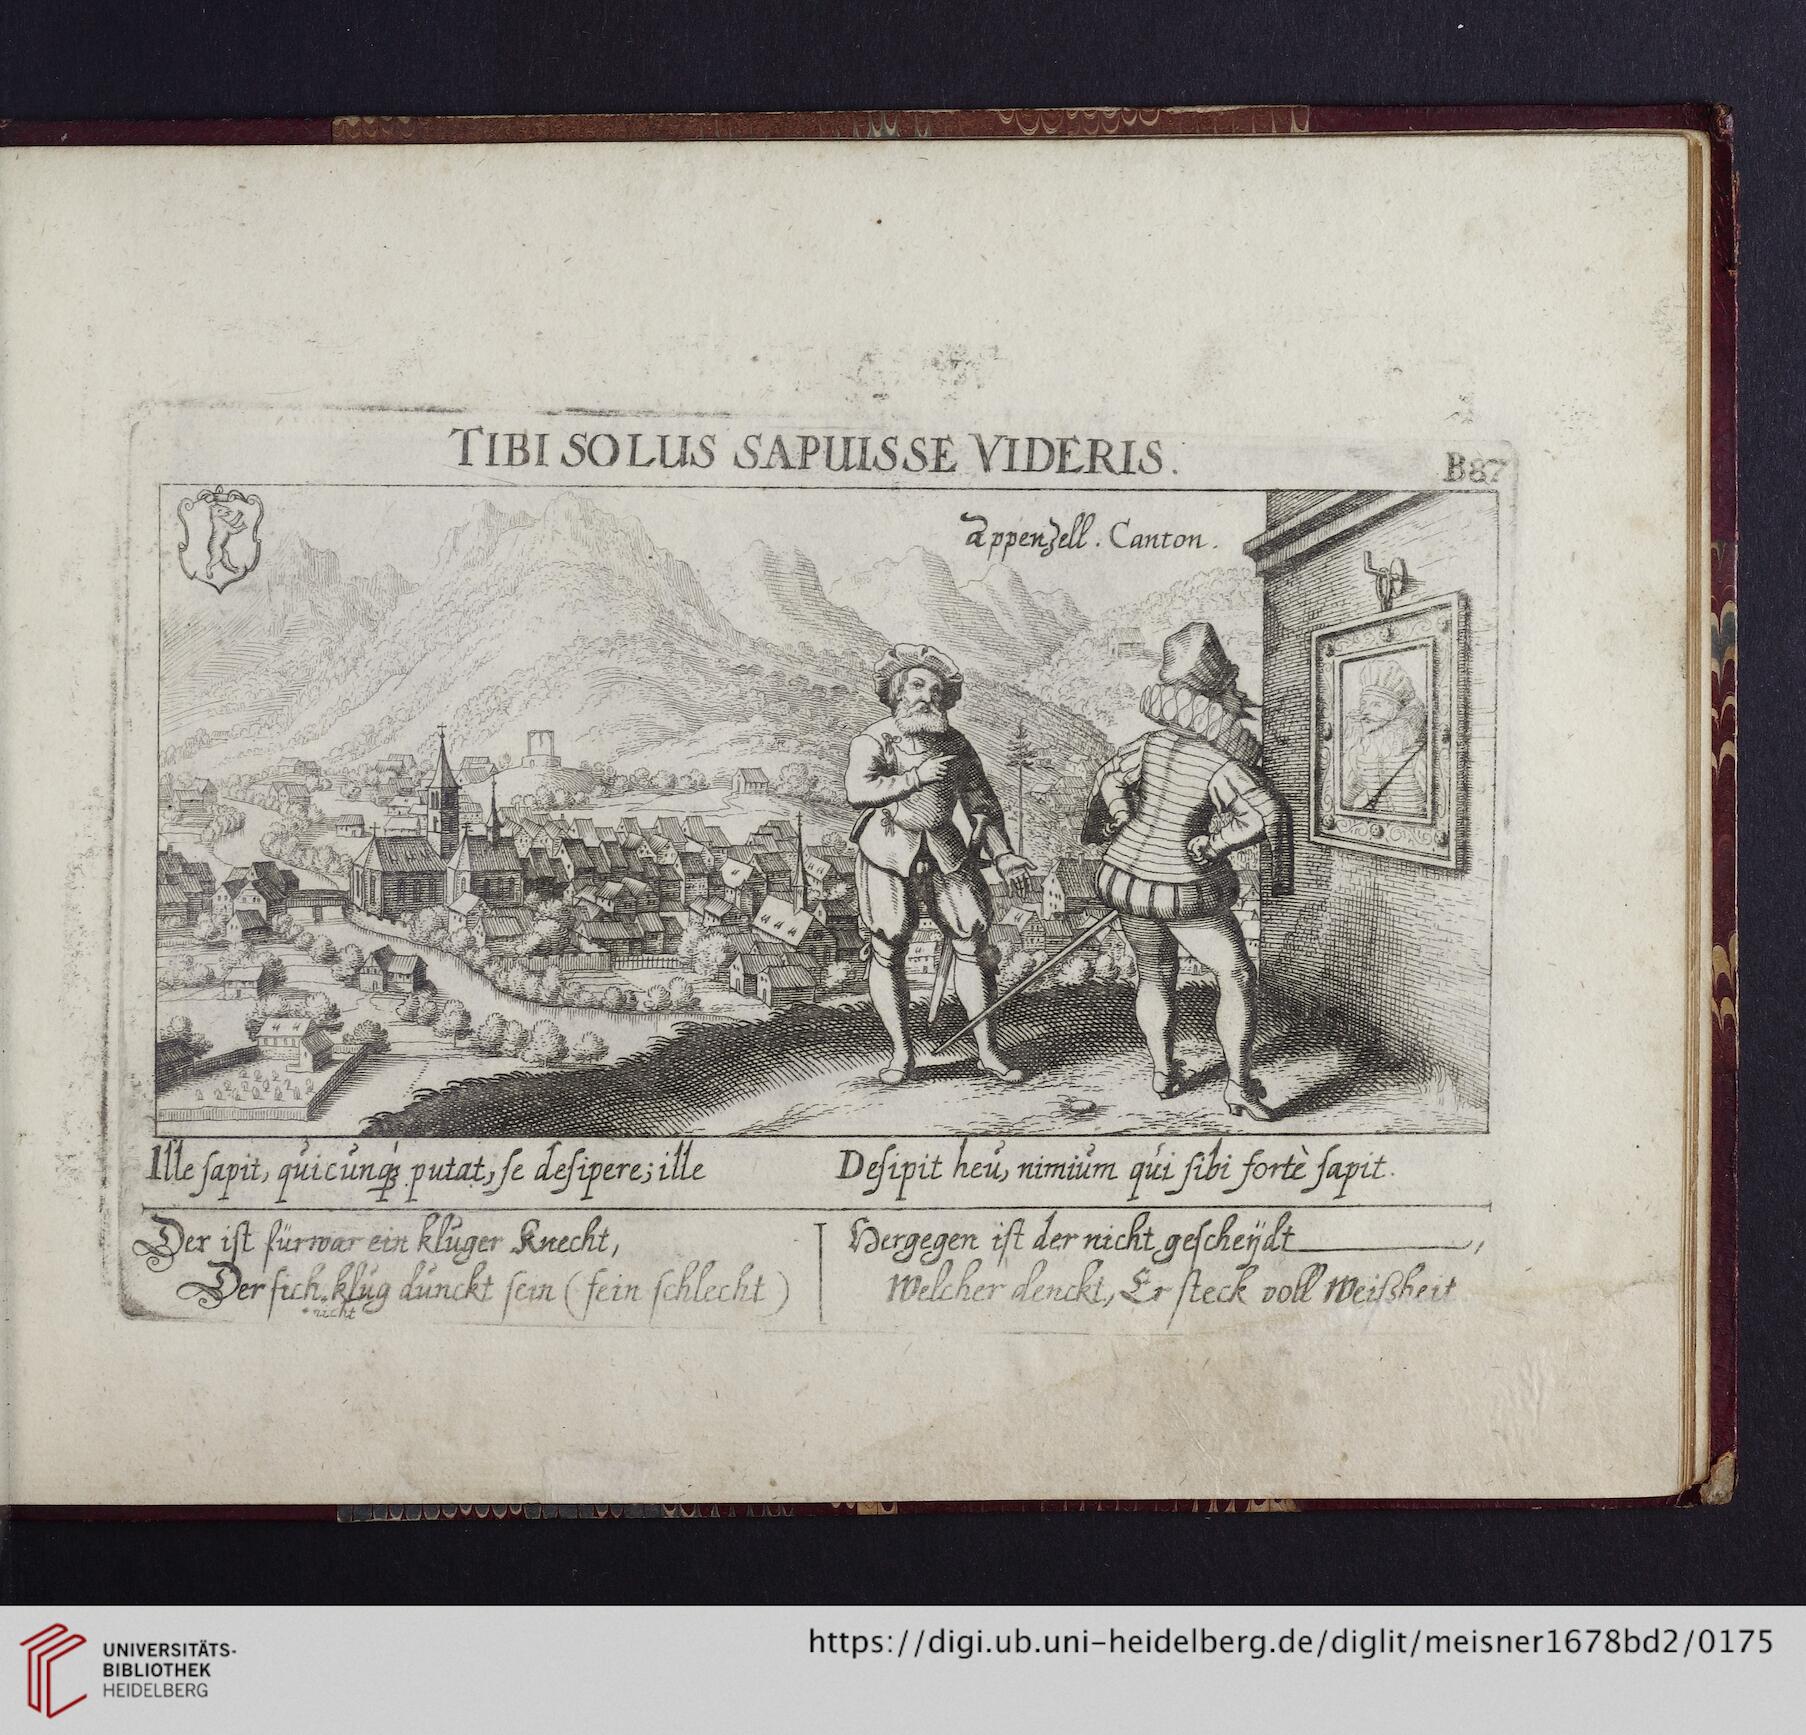 TIBI SOLUS SAPUISSE VIDERIS.
B87
Appenzell. Canton.
Ille sapit, quicunqꝫ putat, se desipere; ille
Desipit heu, nimium qui sibi fortè sapit.
Der ist fürwar ein kluger Knecht,
Der sich klug dunckt sein (fein schlecht)
nicht
Hergegen ist der nicht gescheÿdt,
Welcher denckt, Er steck voll Weißheit
UNIVERSITÄTS-
BIBLIOTHEK
HEIDELBERG
https://digi.ub.uni-heidelberg.de/diglit/meisner1678bd2/0175